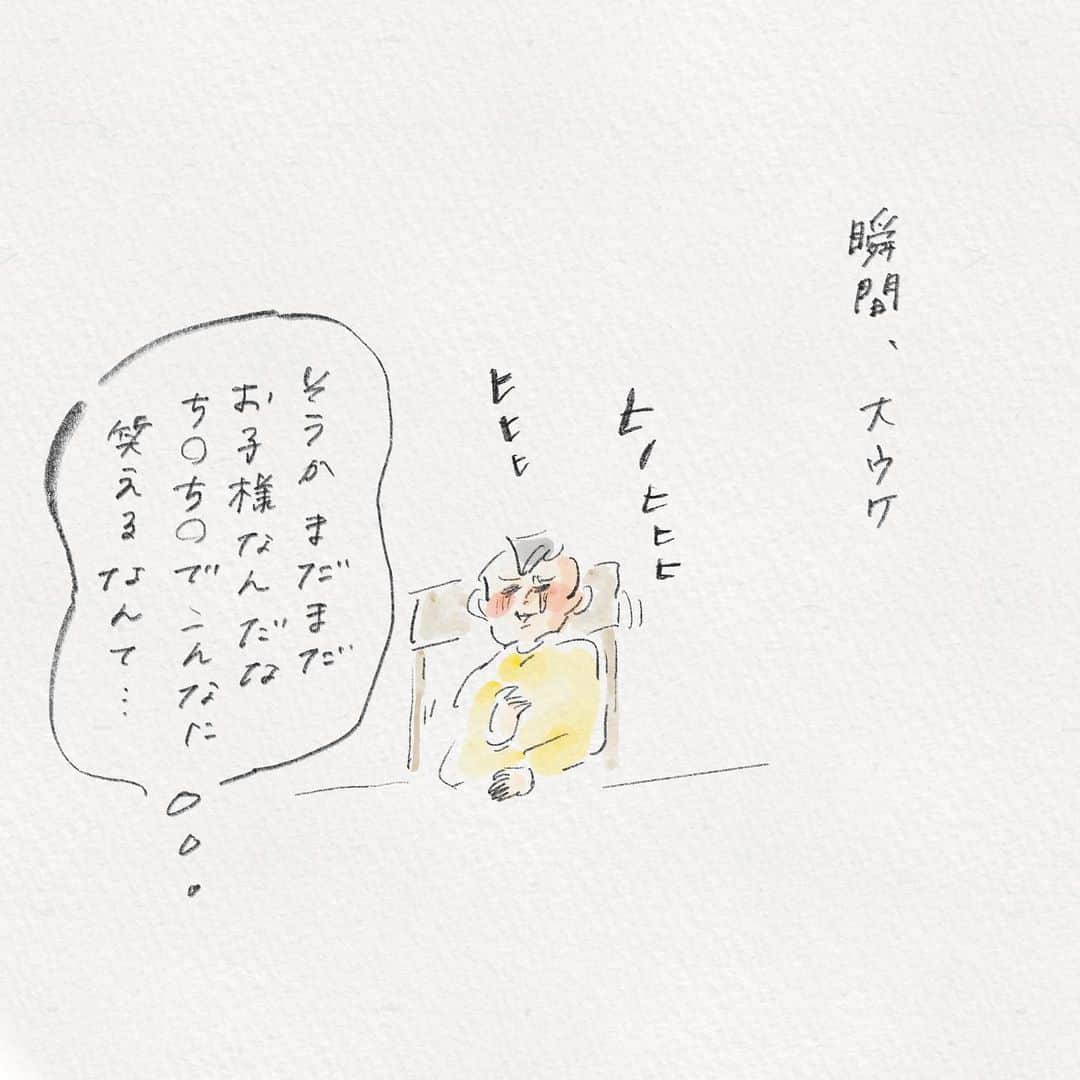 瞬間、大ウケ
ヒーヒヒヒ
ヒヒヒ
そうか まだまだ
お子様なんだな
ち〇ち〇でこんなに
笑えるなんて…